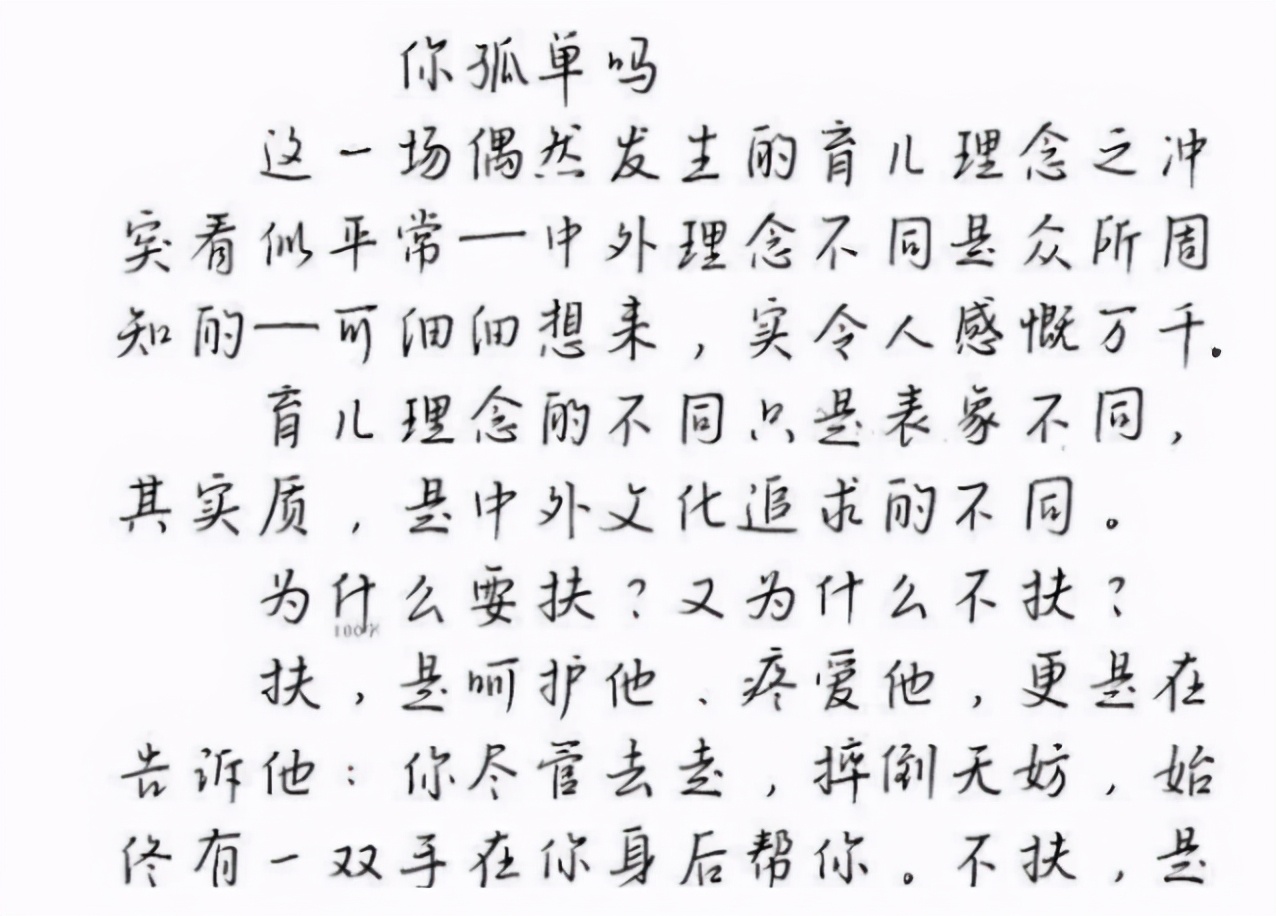 你孤单吗
这一场偶然发生的育儿理念之冲
突看似平常——中外理念不同是众所周
知的——可细细想来，实令人感慨万千.
育儿理念的不同只是表象不同，
其实质，是中外文化追求的不同。
为什么要扶？又为什么不扶？
100%
扶，是呵护他、疼爱他，更是在
告诉他：你尽管去走，摔倒无妨，始
终有一双手在你身后帮你。不扶，是